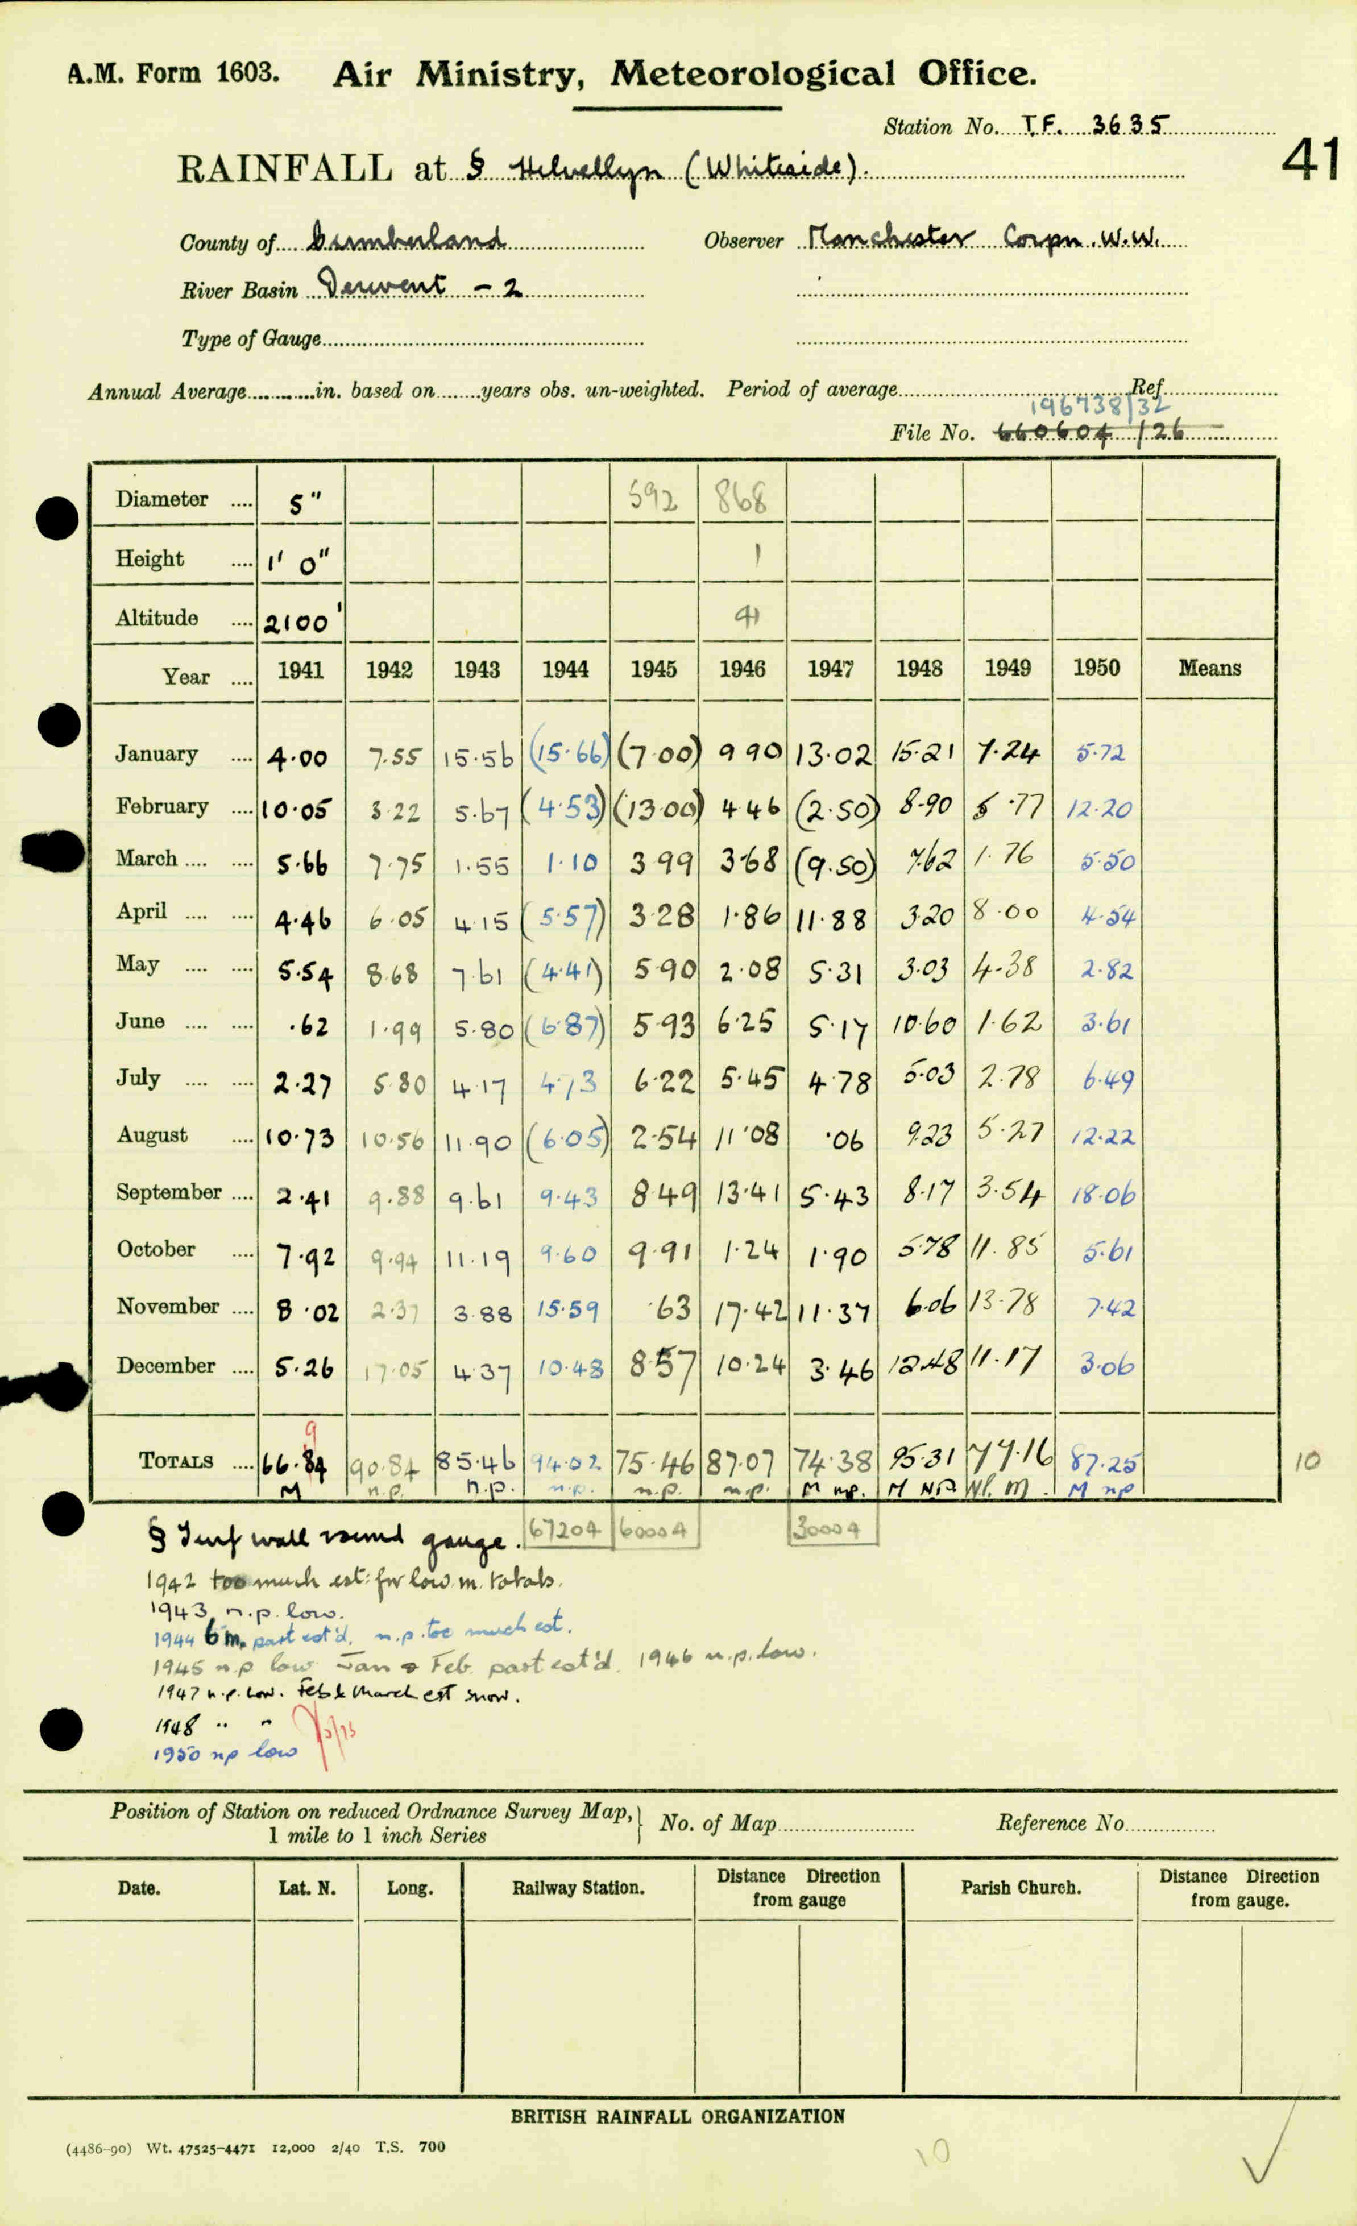 A.M. Form 1603. Air Ministry, Meteorological Office.
Station No. T.F. 3635
41
RAINFALL at § Helvellyn (Whiteside).
County of Cumberland Observer Manchester Corpn. W.W.
River Basin Derwent - 2
Type of Gauge
Annual Average in. based on years obs. un-weighted. Period of average Ref.
196738/32
File No. 660604 /26
Diameter .... 5" 592 868
Height .... 1' 0" 1
Altitude .... 2100' 41
Year .... 1941 1942 1943 1944 1945 1946 1947 1948 1949 1950 Means
January .... 4.00 7.55 15.56 (15.66) (7.00) 9.90 13.02 15.21 7.24 5.72
February .... 10.05 3.22 5.67 (4.53) (13.00) 4.46 (2.50) 8.90 5.77 12.20
March .... .... 5.66 7.75 1.55 1.10 3.99 3.68 (9.50) 7.62 1.76 5.50
April .... .... 4.46 6.05 4.15 (5.57) 3.28 1.86 11.88 3.20 8.00 4.54
May .... .... 5.54 8.68 7.61 (4.41) 5.90 2.08 5.31 3.03 4.38 2.82
June .... .... .62 1.99 5.80 (6.87) 5.93 6.25 5.17 10.60 1.62 3.61
July .... .... 2.27 5.80 4.17 4.73 6.22 5.45 4.78 5.03 2.78 6.49
August .... 10.73 10.56 11.90 (6.05) 2.54 11.08 .06 9.23 5.27 12.22
September .... 2.41 9.88 9.61 9.43 8.49 13.41 5.43 8.17 3.54 18.06
October .... 7.92 9.94 11.19 9.60 9.91 1.24 1.90 5.78 11.85 5.61
November .... 8.02 2.37 3.88 15.59 .63 17.42 11.37 6.06 13.78 7.42
December .... 5.26 17.05 4.37 10.48 8.57 10.24 3.46 12.48 11.17 3.06
9
TOTALS .... 66.84 90.84 85.46 94.02 75.46 87.07 74.38 95.31 77.16 87.25 10
M n.p. n.p. n.p. n.p. n.p. M np. M NP NP. M M np
§ Turf wall round gauge. 67204 60004 30004
1942 too much est: for low m. totals.
1943 n.p. low.
1944 6 m. part est'd. n.p. too much est.
1945 n.p low Jan & Feb. part est'd. 1946 n.p. low.
1947 n.p. low. Feb & March est snow.
1948 " "
1950 np low
Position of Station on reduced Ordnance Survey Map, } No. of Map Reference No.
1 mile to 1 inch Series
Date. Lat. N. Long. Railway Station. Distance Direction from gauge Parish Church. Distance Direction from gauge.
BRITISH RAINFALL ORGANIZATION
(4486-90) Wt. 47525-4471 12,000 2/40 T.S. 700
10